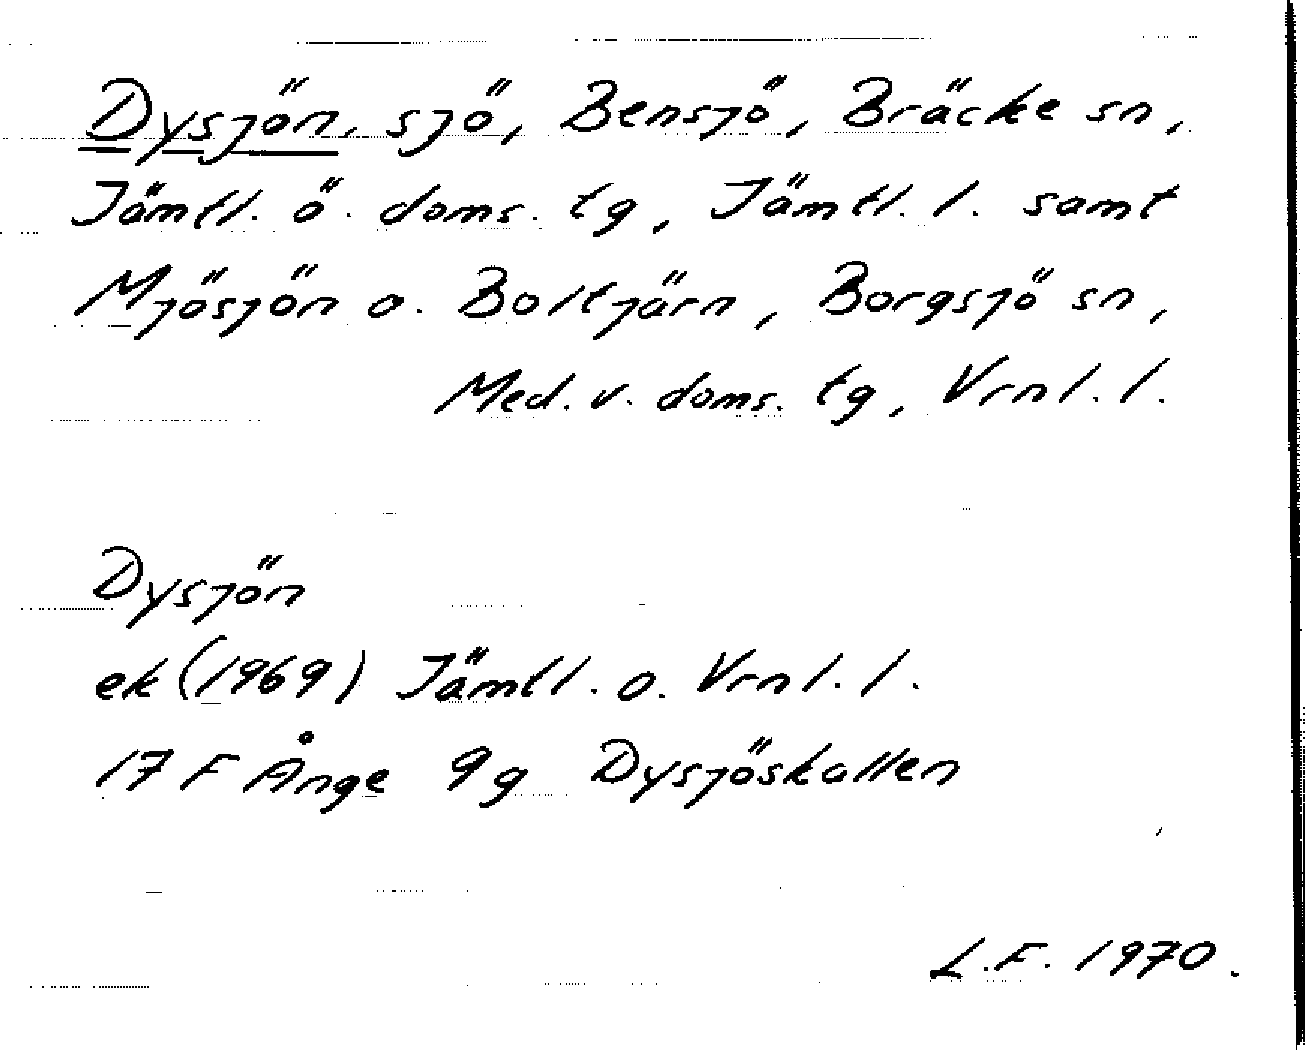 Dysjön, sjö, Bensjö, Bräcke sn,
Jämtl. ö. doms. tg, Jämtl. l. samt
Mjösjön o. Boltjärn, Borgsjö sn,
Med. v. doms. tg, Vrnl. l.
Dysjön
ek (1969) Jämtl. o. Vrnl. l.
17 F Ånge 9g Dysjöskallen
L.F. 1970.